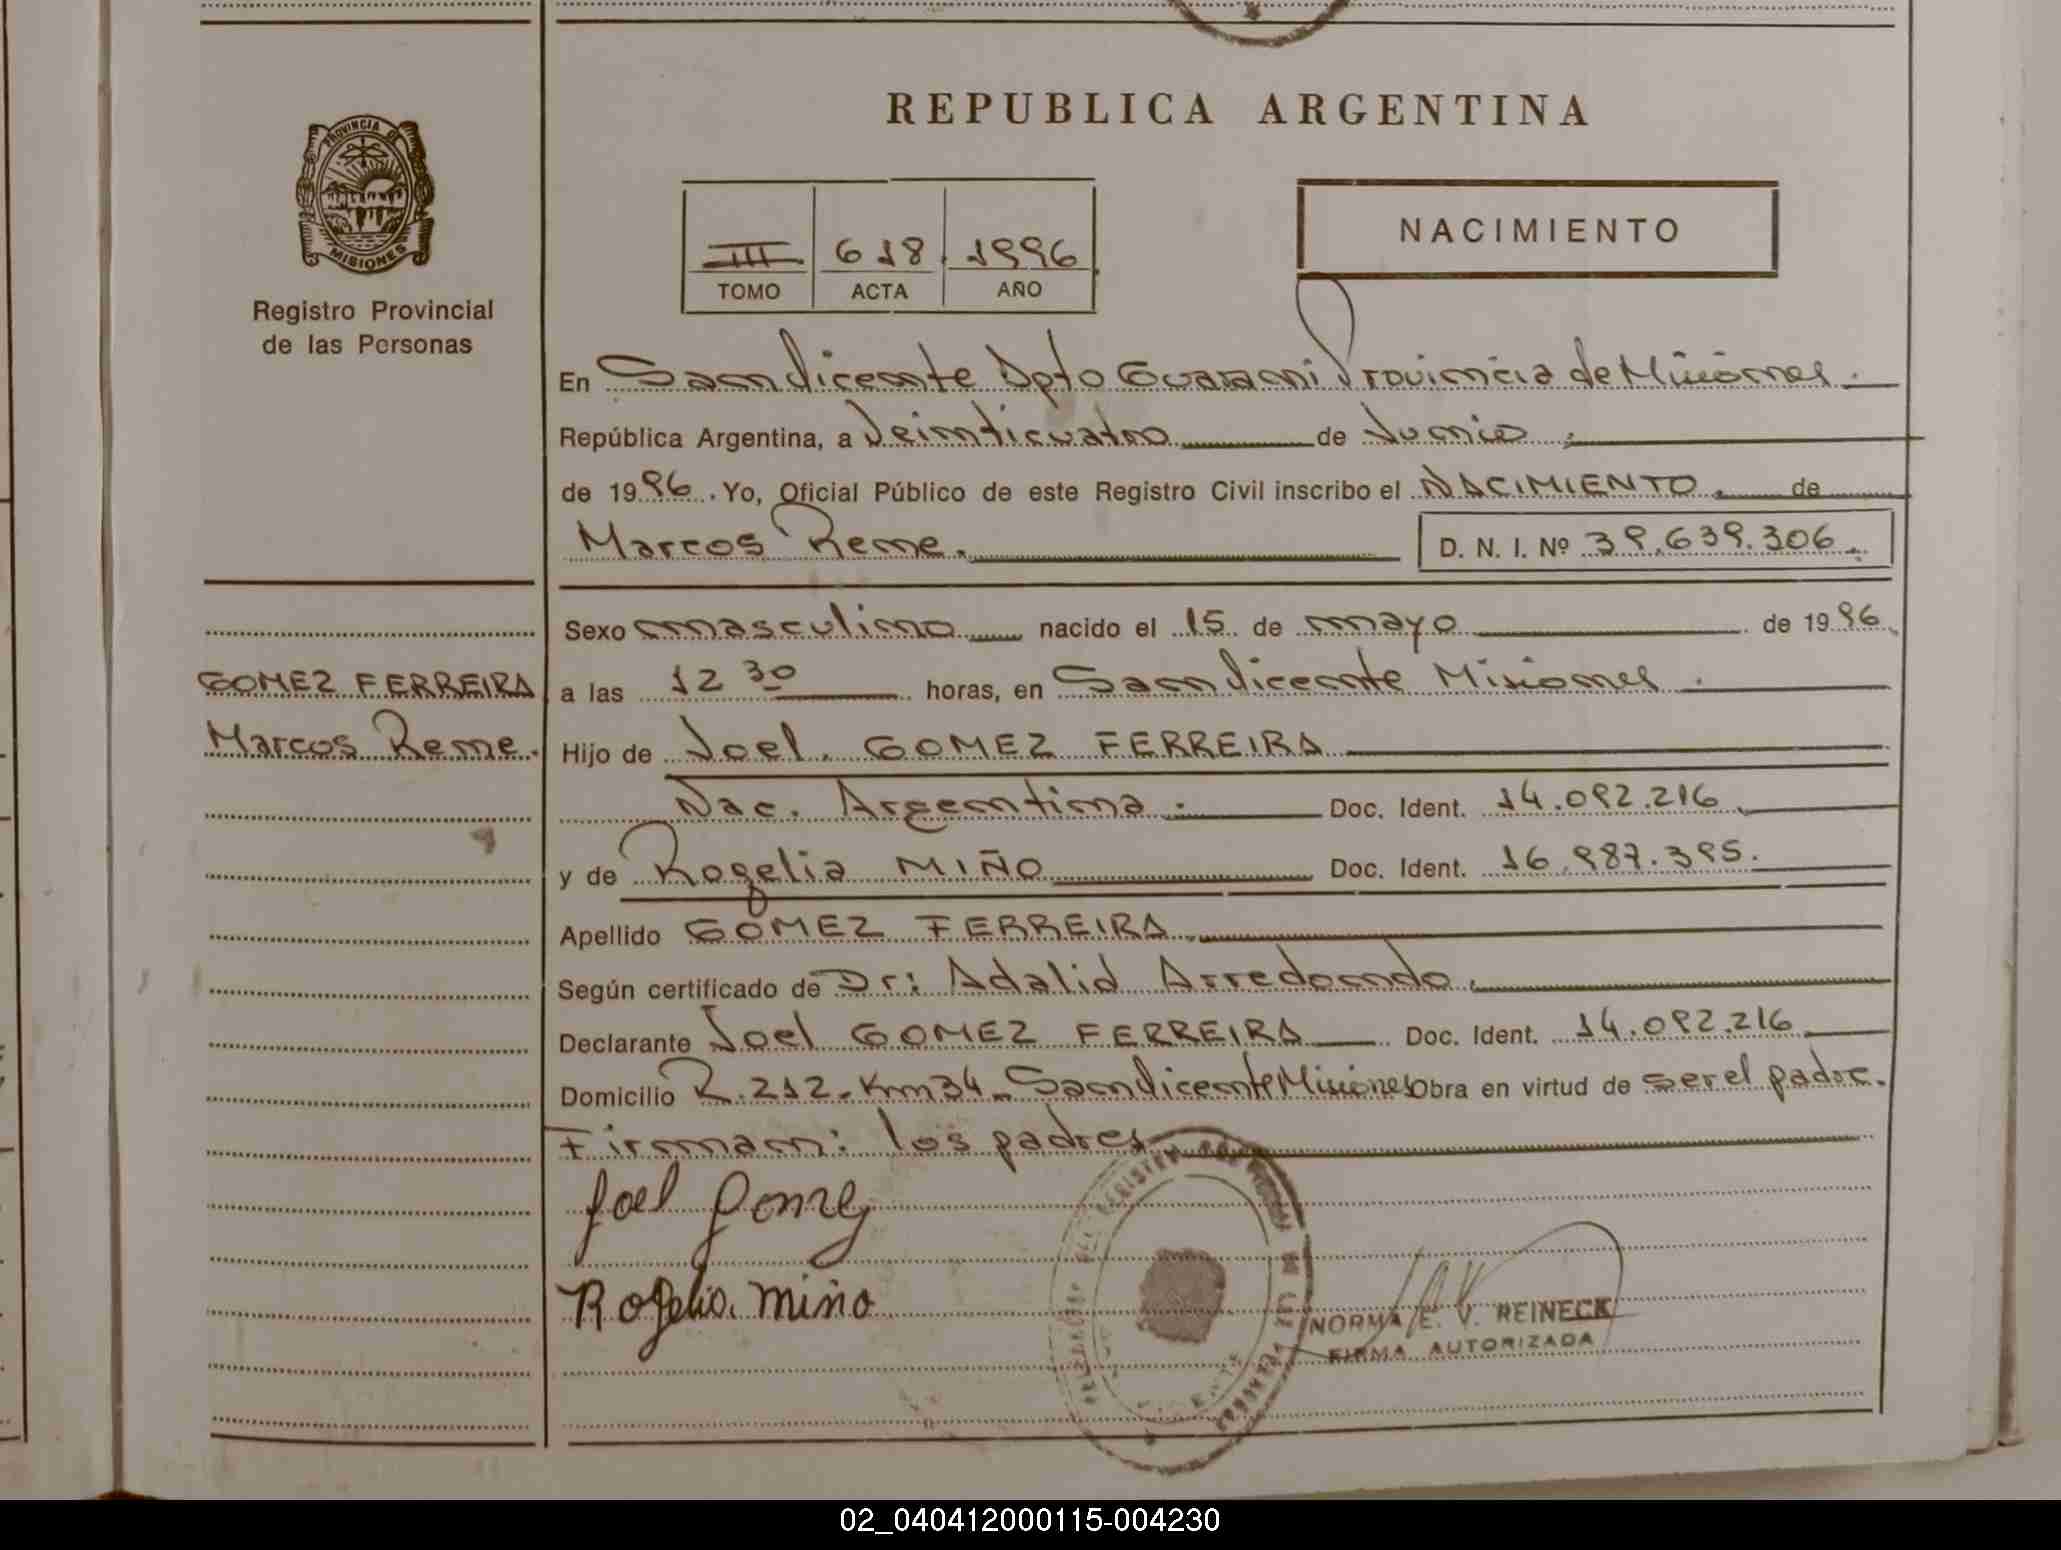 PROVINCIA D
MISIONES
Registro Provincial
de las Personas
REPUBLICA ARGENTINA
III 618 1996
TOMO ACTA AÑO
NACIMIENTO
En San Vicente Dpto Guarani Provincia de Misiones.
República Argentina, a Veinticuatro de Junio
de 1996. Yo, Oficial Público de este Registro Civil inscribo el NACIMIENTO. de
Marcos Rene. D. N. I. Nº 39.639.306.
Sexo masculino nacido el 15 de mayo de 1996
GOMEZ FERREIRA
Marcos Rene.
a las 12 30 horas, en San Vicente Misiones.
Hijo de Joel. GOMEZ FERREIRA
Nac. Argentina. Doc. Ident. 14.092.216
y de Rogelia MIÑO Doc. Ident. 16.987.395.
Apellido GOMEZ FERREIRA
Según certificado de Dr: Adalid Arredondo.
Declarante Joel GOMEZ FERREIRA Doc. Ident. 14.092.216
Domicilio R.212. Km34. San Vicente Misiones Obra en virtud de ser el padre.
Firman: los padres
Joel Gomez
Rogelia. miño
NORMA E. V. REINECK
FIRMA AUTORIZADA
02_040412000115-004230